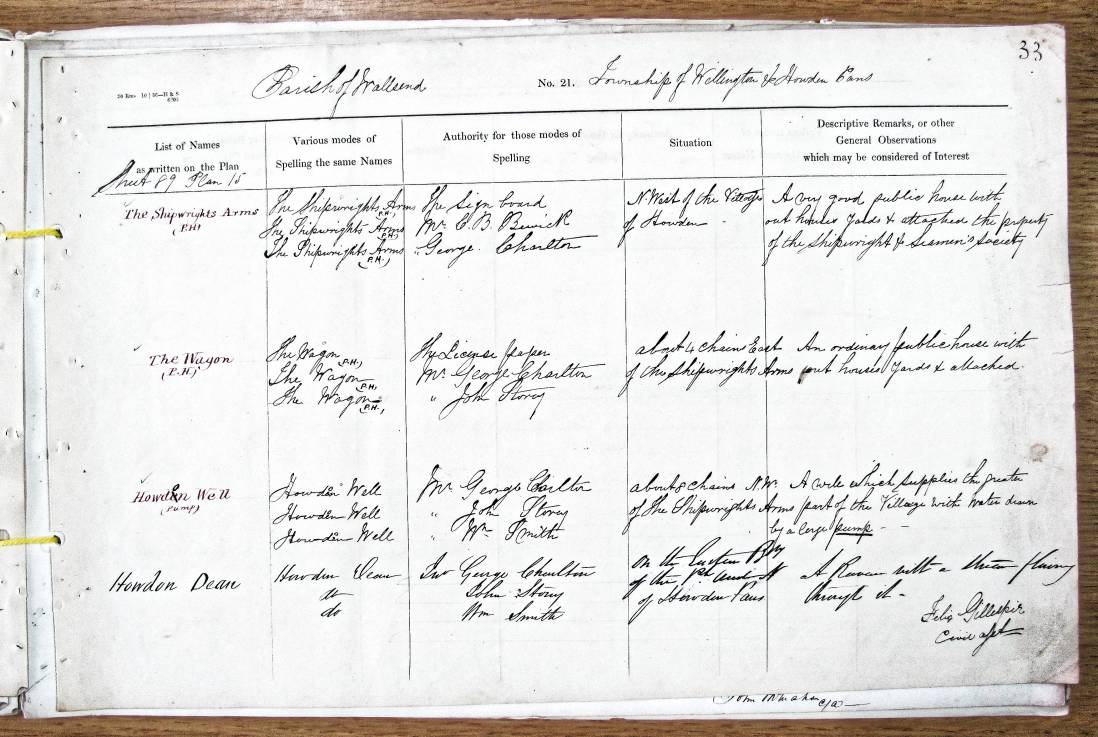 33
Parish of Wallsend
No. 21. Township of Willington & Howden Pans
List of Names
as written on the Plan
Various modes of
Spelling the same Names
Authority for those modes of
Spelling
Situation
Descriptive Remarks, or other
General Observations
which may be considered of Interest
Sheet 89 Plan 15
The Shipwrights Arms
(P.H.)
The Shipwrights Arms
(P.H.)
The Shipwrights Arms
(P.H.)
The Shipwrights Arms
(P.H.)
The Sign board
Mr. C. B. Bewick
" George Charlton
N. West of the Village
of Howden
A very good public house with
out houses Yards & attached the property
of the Shipwright & Seamen's Society
The Wagon
(P.H.)
The Wagon
(P.H.)
The Wagon
(P.H.)
The Wagon
(P.H.)
The License paper
Mr. George Charlton
" John Storey
about 4 chains East
of the Shipwrights Arms
An ordinary public house with
out houses Yards & attached.
Howden Well
(Pump)
Howden Well
Howden Well
Howden Well
Mr. George Charlton
" John Storey
" Wm. Smith
about 8 chains N.W.
of The Shipwrights Arms
A well which supplies the greater
part of the Village with water drawn
by a large pump - -
Howdon Dean
Howdon Dean
do
do
George Charlton
John Storey
Wm Smith
on the Eastern Bdy
of the Psh and N
of Howdon Pans
A Ravine with a stream flowing
through it -
Felix Gillespie
Civil asst
c/a